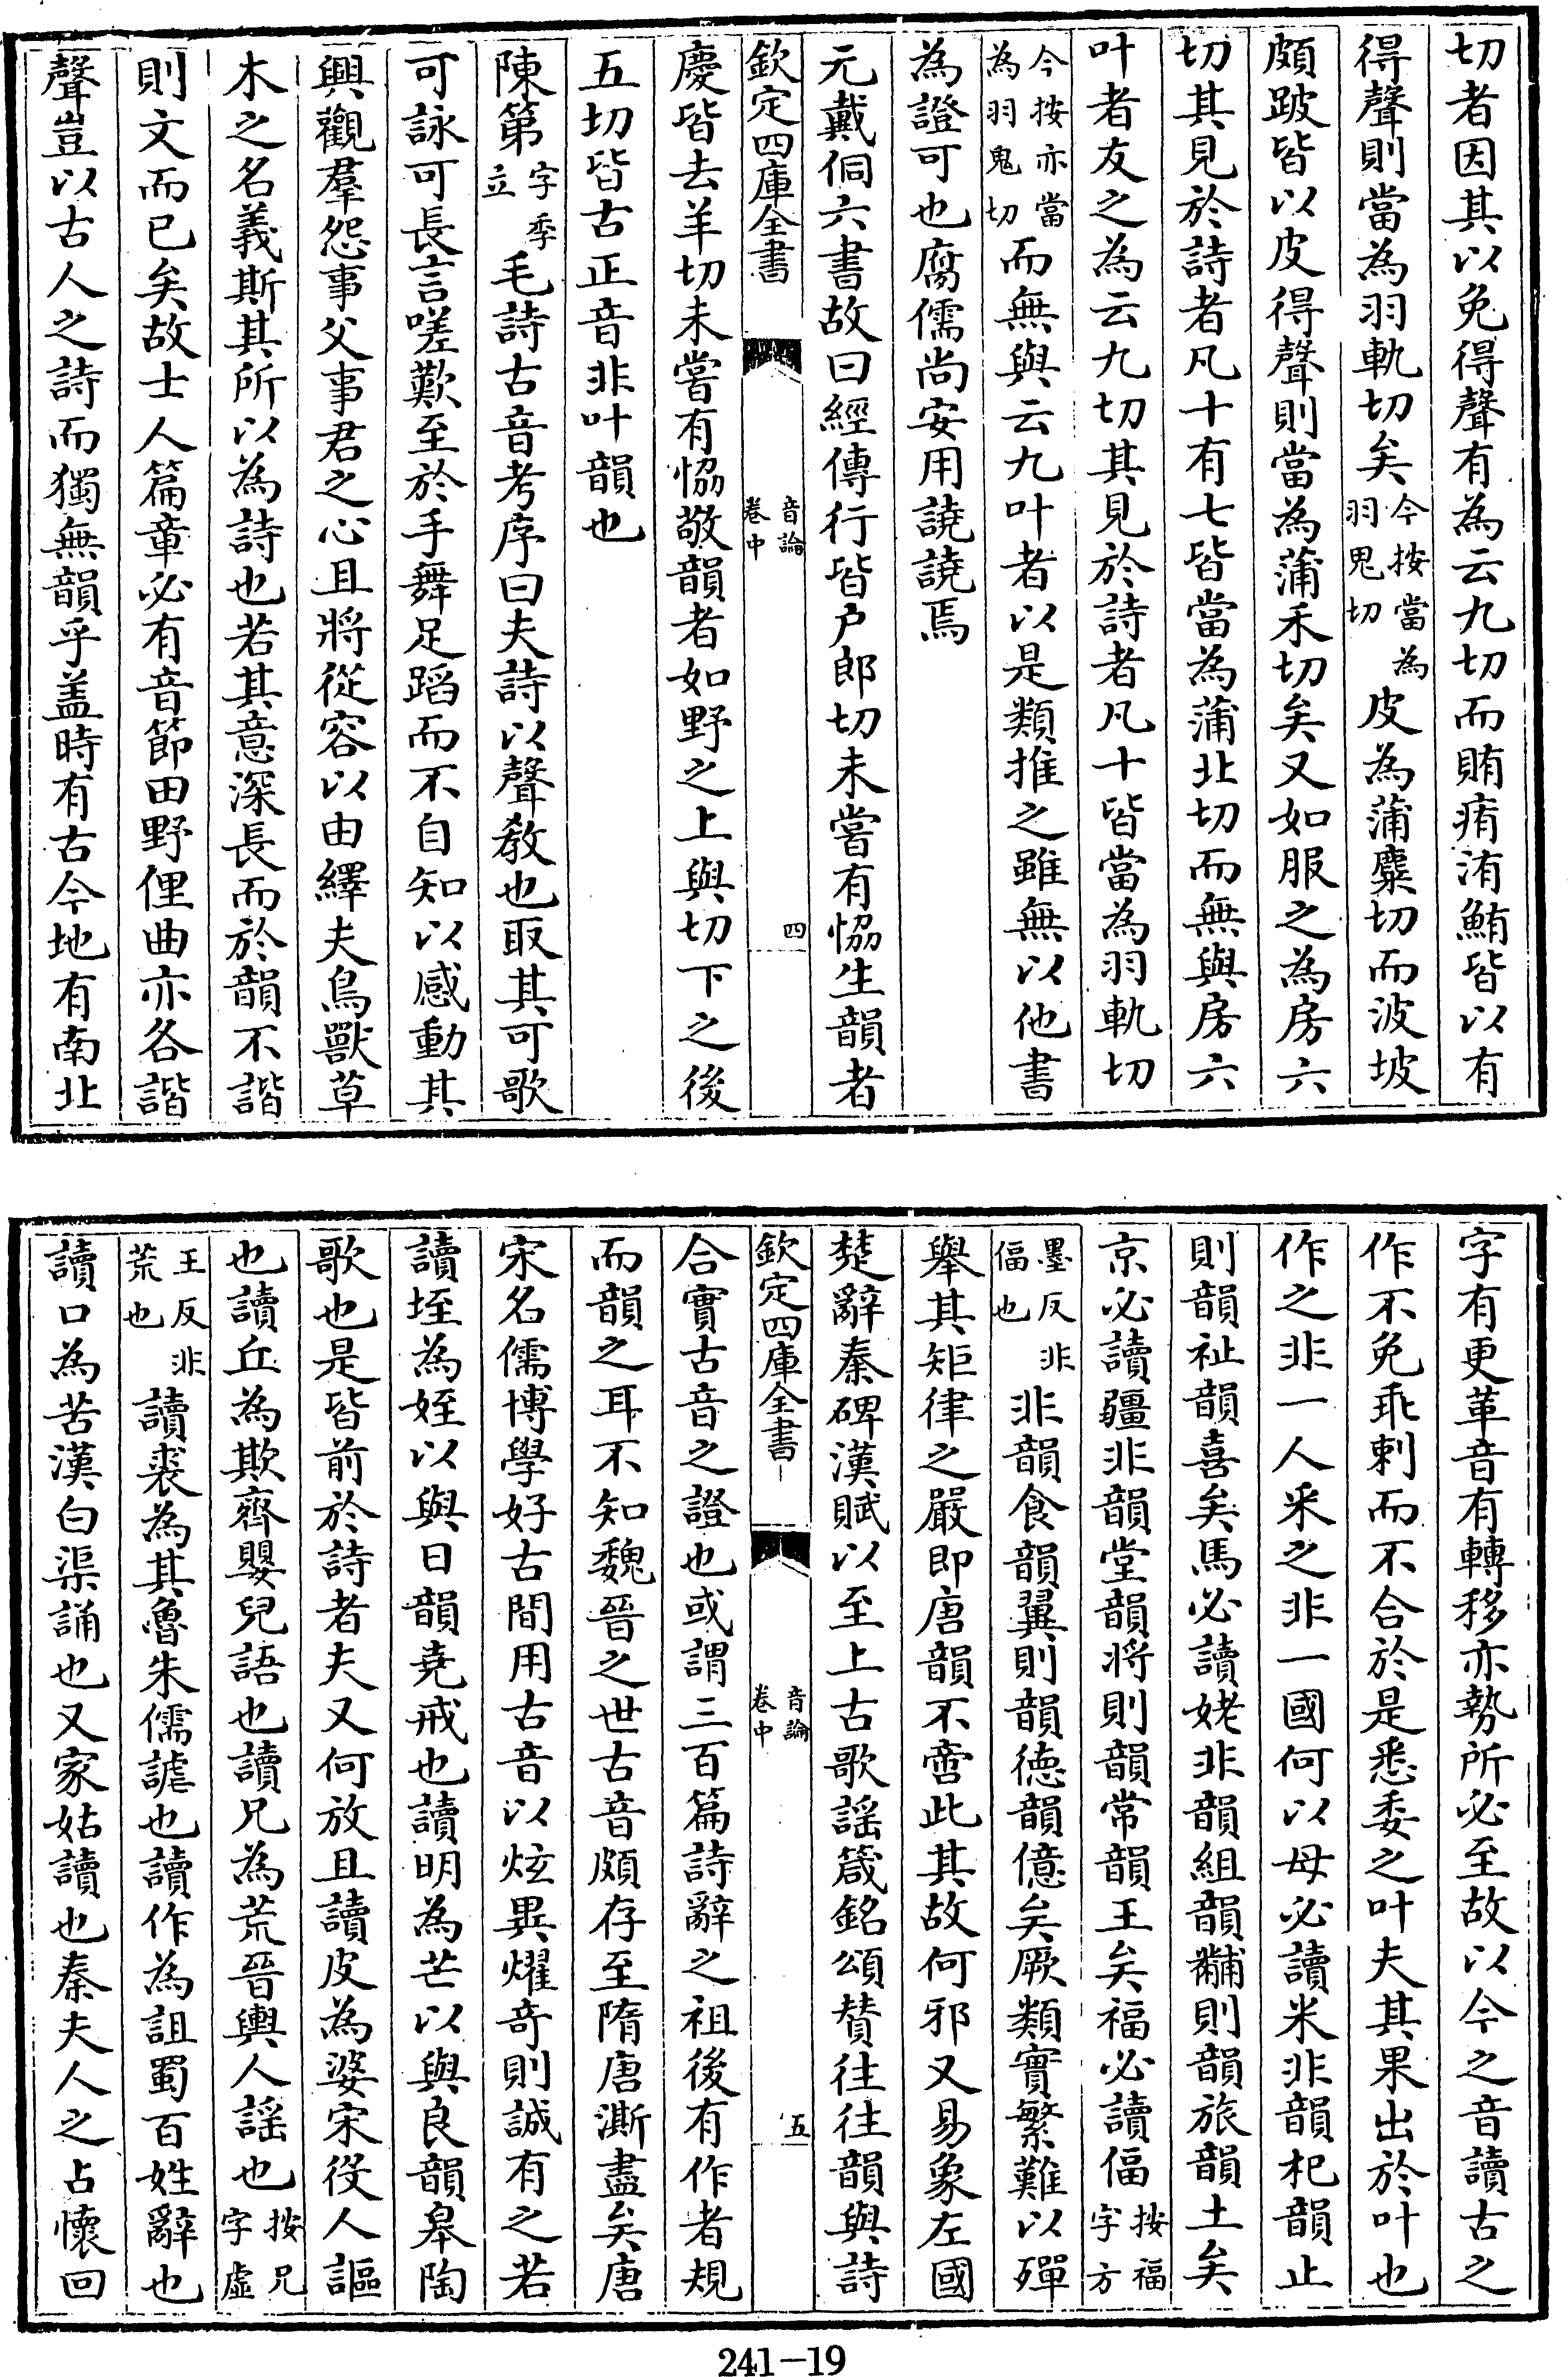 切者因其以免得聲有為云九切而賄痏洧鮪皆以有
得聲則當為羽軌切矣今按當為羽鬼切皮為蒲麋切而波坡
頗跛皆以皮得聲則當為蒲禾切矣又如服之為房六
切其見於詩者凡十有七皆當為蒲北切而無與房六
叶者友之為云九切其見於詩者凡十皆當為羽軌切
今按亦當為羽鬼切而無與云九叶者以是類推之雖無以他書
為證可也腐儒尚安用譊譊焉
元戴侗六書故曰經傳行皆户郎切未嘗有恊生韻者
欽定四庫全書 音論卷中 四
慶皆去羊切未嘗有恊敬韻者如野之上與切下之後
五切皆古正音非叶韻也
陳第字季立毛詩古音考序曰夫詩以聲教也取其可歌
可詠可長言嗟歎至於手舞足蹈而不自知以感動其
興觀羣怨事父事君之心且將從容以由繹夫鳥獸草
木之名義斯其所以為詩也若其意深長而於韻不諧
則文而已矣故士人篇章必有音節田野俚曲亦各諧
聲豈以古人之詩而獨無韻乎盖時有古今地有南北
字有更革音有轉移亦勢所必至故以今之音讀古之
作不免乖剌而不合於是悉委之叶夫其果出於叶也
作之非一人采之非一國何以母必讀米非韻杞韻止
則韻祉韻喜矣馬必讀姥非韻組韻黼則韻旅韻土矣
京必讀疆非韻堂韻將則韻常韻王矣福必讀偪按福字方
墨反非偪也非韻食韻翼則韻德韻億矣厥類實繁難以殫
舉其矩律之嚴即唐韻不啻此其故何邪又易象左國
楚辭秦碑漢賦以至上古歌謡箴銘頌贊往往韻與詩
欽定四庫全書 音論卷中 五
合實古音之證也或謂三百篇詩辭之祖後有作者規
而韻之耳不知魏晉之世古音頗存至隋唐澌盡矣唐
宋名儒博學好古間用古音以炫異燿奇則誠有之若
讀垤為姪以與日韻堯戒也讀明為芒以與良韻皋陶
歌也是皆前於詩者夫又何放且讀皮為婆宋役人謳
也讀丘為欺齊嬰兒語也讀兄為荒晉輿人謡也按兄字虛
王反非荒也讀裘為其魯朱儒謔也讀作為詛蜀百姓辭也
讀口為苦漢白渠誦也又家姑讀也秦夫人之占懷回
241-19